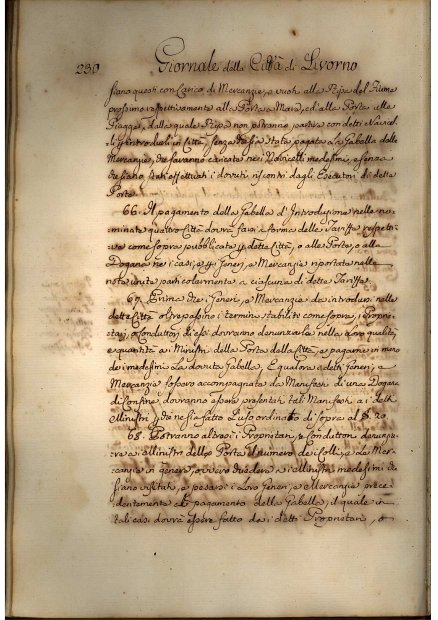 230 Giornale della Città di Livorno
siano questi con Carico di Mercanzie, a vuoti alla Ripa del Fiume
prossima rispettivamente alla Porta a Mare, e di alla Porta alle
Piagge, dalla quale Ripa non potranno partire con detti Navicel-
li, e introdursi in Città, senza che sia stata pagata la Gabella delle
Mercanzie, che saranno caricate nei Navicelli medesimi, e senza
che siano stati effettuati i dovuti riscontri dagli Esecutori di detta
Porta
66. Il pagamento della Gabella d'Introduzione nelle no-
minate quattro Città dovrà farsi a forma delle Tariffe respetti-
ve come sopra pubblicate p. dette Città, o alle Porte, o alla
Dogana nei casi, e p. i Generi, e Mercanzie riportate nelle
note unite particolarmente a ciascuna di dette Tariffe.
67. Prima che i Generi, e Mercanzie da introdursi nelle
dette Città oltrepassino i termini stabiliti come sopra, i Proprie-
tari, o Conduttori di essi dovranno denunziarle nella Loro qualità,
e quantità ai Ministri della Porta della Città, e pagarne in mano
dei medesimi La dovuta Gabella, E qualora i detti Generi, e
Mercanzie fossero accompagnate da Manifesti di una Dogana
di Confine dovranno essere presentati tali Manifesti ai detti
Ministri p. che ne sia fatto L'uso ordinato di sopra al §. 20
68. Potranno altresì i Proprietari, e Conduttori denunzia-
re ai Ministri delle Porte il numero dei Colli, e La Mer-
canzia in genere, ovvero chiedere ai Ministri medesimi che
siano visitati, e pesati i Loro Generi, e Mercanzie prece-
dentemente al pagamento della Gabella, il quale in
tali casi dovrà essere fatto dai detti Proprietari, o